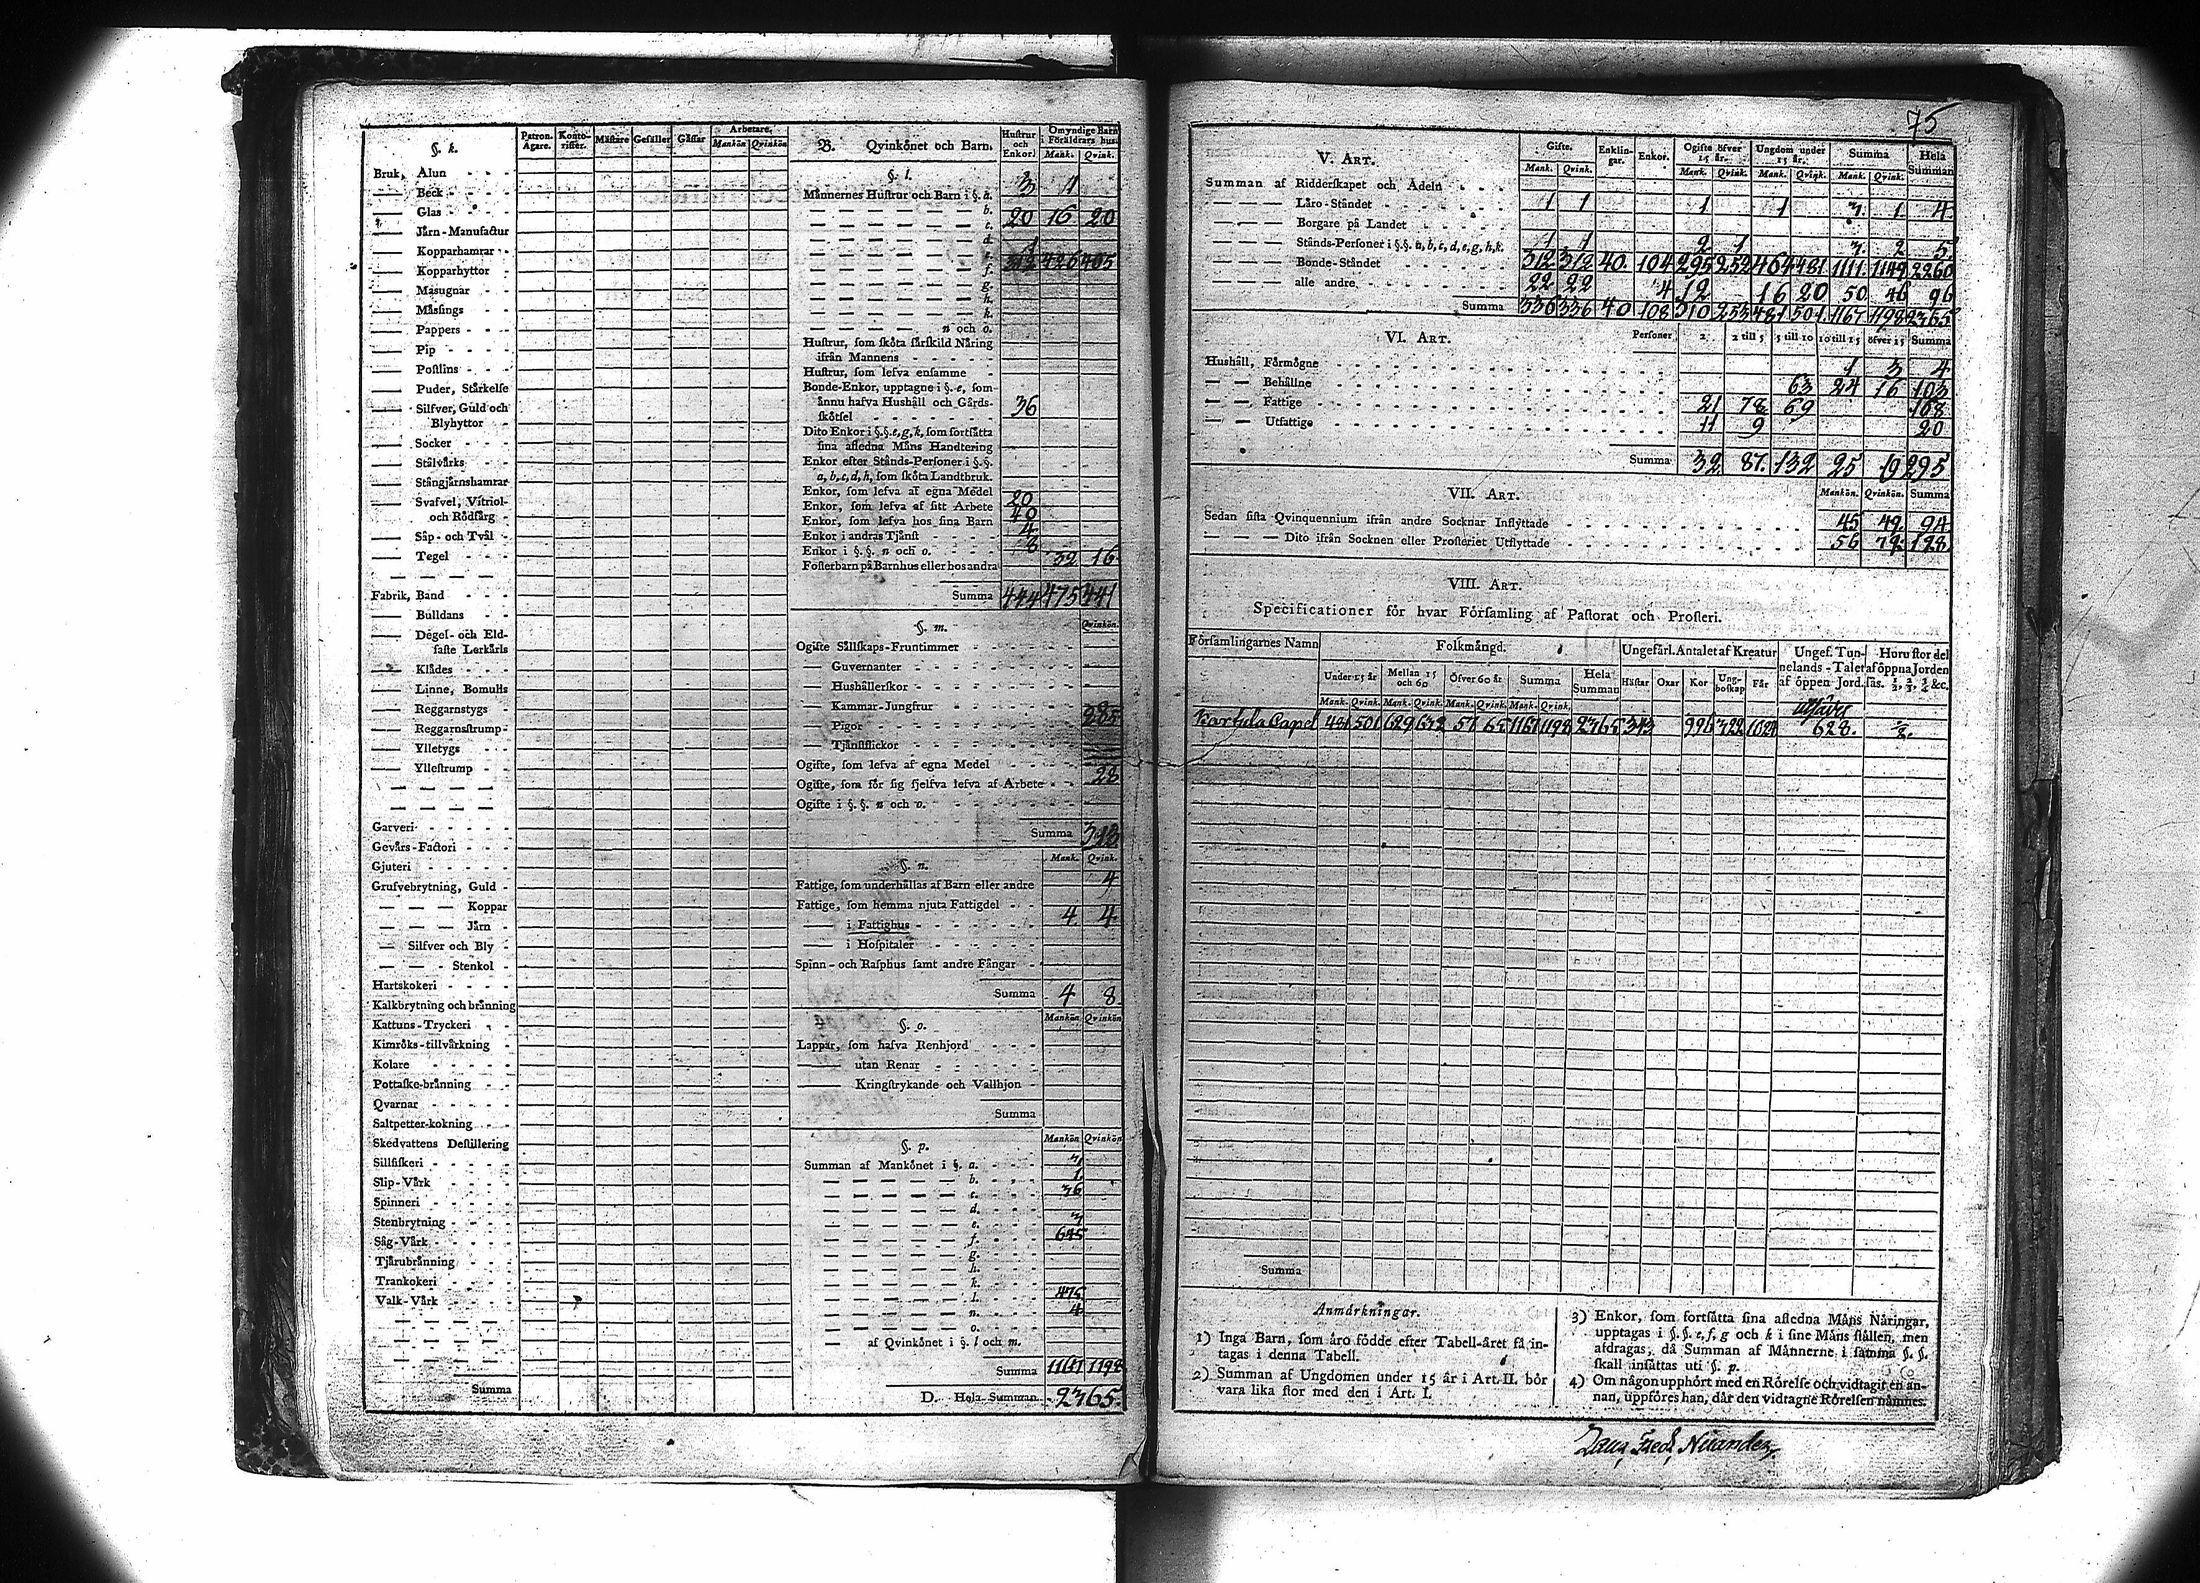 §. k.
Patron. Ägare.
Konto-risser.
Mästare
Gesäller
Gåssar
Arbetare.
Mankön Qvinkön
Bruk, Alun
— Beck
— Glas
— Järn-Manufactur
— Kopparhamrar
— Kopparhyttor
— Masugnar
— Måssings
— Pappers
— Pip
— Postlins
— Puder, Stärkelse
— Silfver, Guld och
Blyhyttor
Socker
— Stålvärks
— Stångjärnshamrar
— Svafvel, Vitriol-
och Rödfärg
— Såp- och Tvål
— Tegel
— — — —
Fabrik, Band
— Bulldans
— Degel- och Eld-
faste Lerkärls
— Klädes
— Linne, Bomulls
— Reggarnstygs
— Reggarnsstrump
— Ylletygs
— Yllestrump
— — — —
— — — —
Garveri
Gevärs-Factori
Gjuteri
Grufvebrytning, Guld
— — — Koppar
— — — Järn
— Silfver och Bly
— — Stenkol
Hartskokeri
Kalkbrytning och bränning
Kattuns-Tryckeri
Kimröks-tillvärkning
Kolare
Pottaske-bränning
Qvarnar
Saltpetter-kokning
Skedvattens Destillering
Sillfiskeri
Slip-Värk
Spinneri
Stenbrytning
Såg-Värk
Tjärubränning
Trankokeri
Valk-Värk
Summa
B. Qvinkönet och Barn.
Hustrur och Enkor.
Omyndige Barn i Föräldrars hus.
Mank. Qvink.
§. l.
Männernes Hustrur och Barn i §. a. 3 1
— — — — — b.
— — — — — c. 20 16 20
— — — — — d.
— — — — — e. 1
— — — — — f. 312 426 405
— — — — — g.
— — — — — h.
— — — — — k.
— — — — n och o.
Hustrur, som sköta särskild Näring
ifrån Mannens
Hustrur, som lefva ensamme
Bonde-Enkor, upptagne i §. e, som
ännu hafva Hushåll och Gårds-
skötsel 36
Dito Enkor i §.§. e, g, k, som fortsätta
sina afledna Mäns Handtering
Enkor efter Stånds-Personer i §.§.
a, b, c, d, h, som sköta Landtbruk.
Enkor, som lefva af egna Medel 20
Enkor, som lefva af sitt Arbete 40
Enkor, som lefva hos sina Barn 4
Enkor i andras Tjänst 8
Enkor i §.§. n och o.
Fosterbarn på Barnhus eller hos andra 32 16
Summa 444 475 441
§. m.
Qvinkön.
Ogifte Sällskaps-Fruntimmer
— Guvernanter
— Hushållerskor
— Kammar-Jungfrur
— Pigor 285
— Tjänstflickor
Ogifte, som lefva af egna Medel
Ogifte, som för sig sjelfva lefva af Arbete 28
Ogifte i §.§. n och o.
Summa 313
§. n.
Mank. Qvink.
Fattige, som underhållas af Barn eller andre 4
Fattige, som hemma njuta Fattigdel 4 4
— i Fattighus
— i Hospitaler
Spinn- och Rasphus samt andre Fångar
Summa 4 8
§. o.
Mankön Qvinkön
Lappar, som hafva Renhjord
— utan Renar
— Kringstrykande och Vallhjon
Summa
§. p.
Mankön Qvinkön
Summan af Mankönet i §. a. 3
— — — — — b. 1
— — — — — c. 36
— — — — — d.
— — — — — e. 3
— — — — — f. 645
— — — — — g.
— — — — — h.
— — — — — k.
— — — — — l. 475
— — — — — n. 4
— — — — — o.
— af Qvinkönet i §. l och m.
Summa 1167 1198
D. Hela Summan 2365
75
V. ART.
Gifte. Mank. Qvink.
Enklingar.
Enkor.
Ogifte öfver 15 år. Mank. Qvink.
Ungdom under 15 år. Mank. Qvink.
Summa Mank. Qvink.
Hela Summan
Summan af Ridderskapet och Adeln
— — — Läro-Ståndet 1 1 1 1 3 1 4
— — — Borgare på Landet
— — — Stånds-Personer i §.§. a, b, c, d, e, g, h, k. 1 1 2 1 3 2 5
— — — Bonde-Ståndet 312 312 40 104 295 252 464 481 1111 1149 2260
— — — alle andre 22 22 4 12 16 20 50 46 96
Summa 336 336 40 108 310 253 481 501 1167 1198 2365
VI. ART.
Personer 2 2 till 5 5 till 10 10 till 15 öfver 15 Summa
Hushåll, Förmögne 1 3 4
— — Behållne 63 24 16 103
— — Fattige 21 78 69 168
— — Utfattige 11 9 20
Summa 32 87 132 25 19 295
VII. ART.
Mankön. Qvinkön. Summa
Sedan sista Qvinquennium ifrån andre Socknar Inflyttade 45 49 94
— — — Dito ifrån Socknen eller Prosteriet Utflyttade 56 72 128
VIII. ART.
Specificationer för hvar Församling af Pastorat och Prosteri.
Församlingarnes Namn
Folkmängd.
Under 15 år
Mellan 15 och 60
Öfver 60 år
Summa
Hela Summan
Mank. Qvink. Mank. Qvink. Mank. Qvink. Mank. Qvink.
Ungefärl. Antalet af Kreatur
Hästar Oxar Kor Ung-boskap Får
Ungef. Tunnelands-Talet af öppen Jord.
Huru stor del af öppna Jorden sås. ½, ⅔, ¾ &c.
Karstula Capel 481 501 629 632 57 65 1167 1198 2365 343 996 322 1024 628 ½
Summa
Anmärkningar.
1) Inga Barn, som äro födde efter Tabell-året få in-
tagas i denna Tabell.
2) Summan af Ungdomen under 15 år i Art. II. bör
vara lika stor med den i Art. I.
3) Enkor, som fortsätta sina afledna Mäns Näringar,
upptagas i §.§. e, f, g och k i sine Mäns ställen, men
afdragas, då Summan af Männerne i samma §.§.
skall insättas uti §. p.
4) Om någon upphört med en Rörelse och vidtagit en an-
nan, uppföres han, där den vidtagne Rörelsen nämnes.